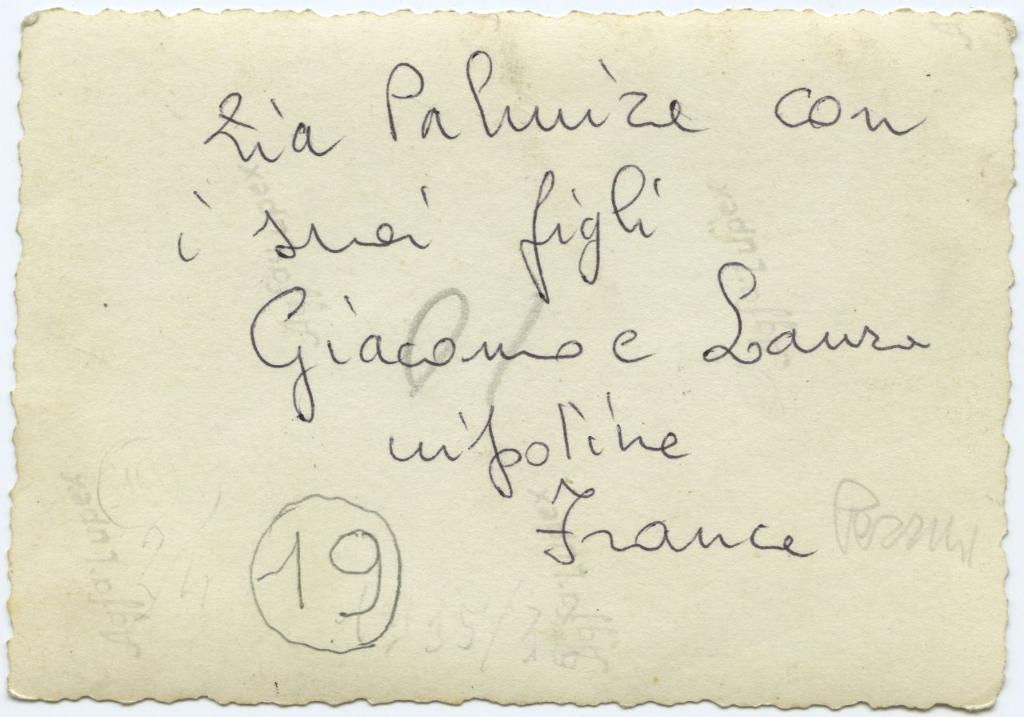 Zia Palmira con
i suoi figli
Giacomo e Laura
nipotine
France
19
Agfa-Lupex
Agfa-Lupex
Agfa-Lupex
Agfa-Lupex